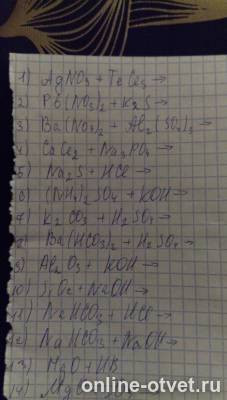 1) AgNO3 + FeCl3 →
2) Pb(NO3)2 + K2S →
3) Ba(NO3)2 + Al2(SO4)3 →
4) CaCl2 + Na3PO4 →
5) Na2S + HCl →
6) (NH4)2SO4 + KOH →
7) K2CO3 + H2SO4 →
8) Ba(HCO3)2 + H2SO4 →
9) Al2O3 + KOH →
10) SiO2 + NaOH →
11) NaHCO3 + HCl →
12) NaHCO3 + NaOH →
13) MgO + HBr
14) MgO
online-otvet.ru